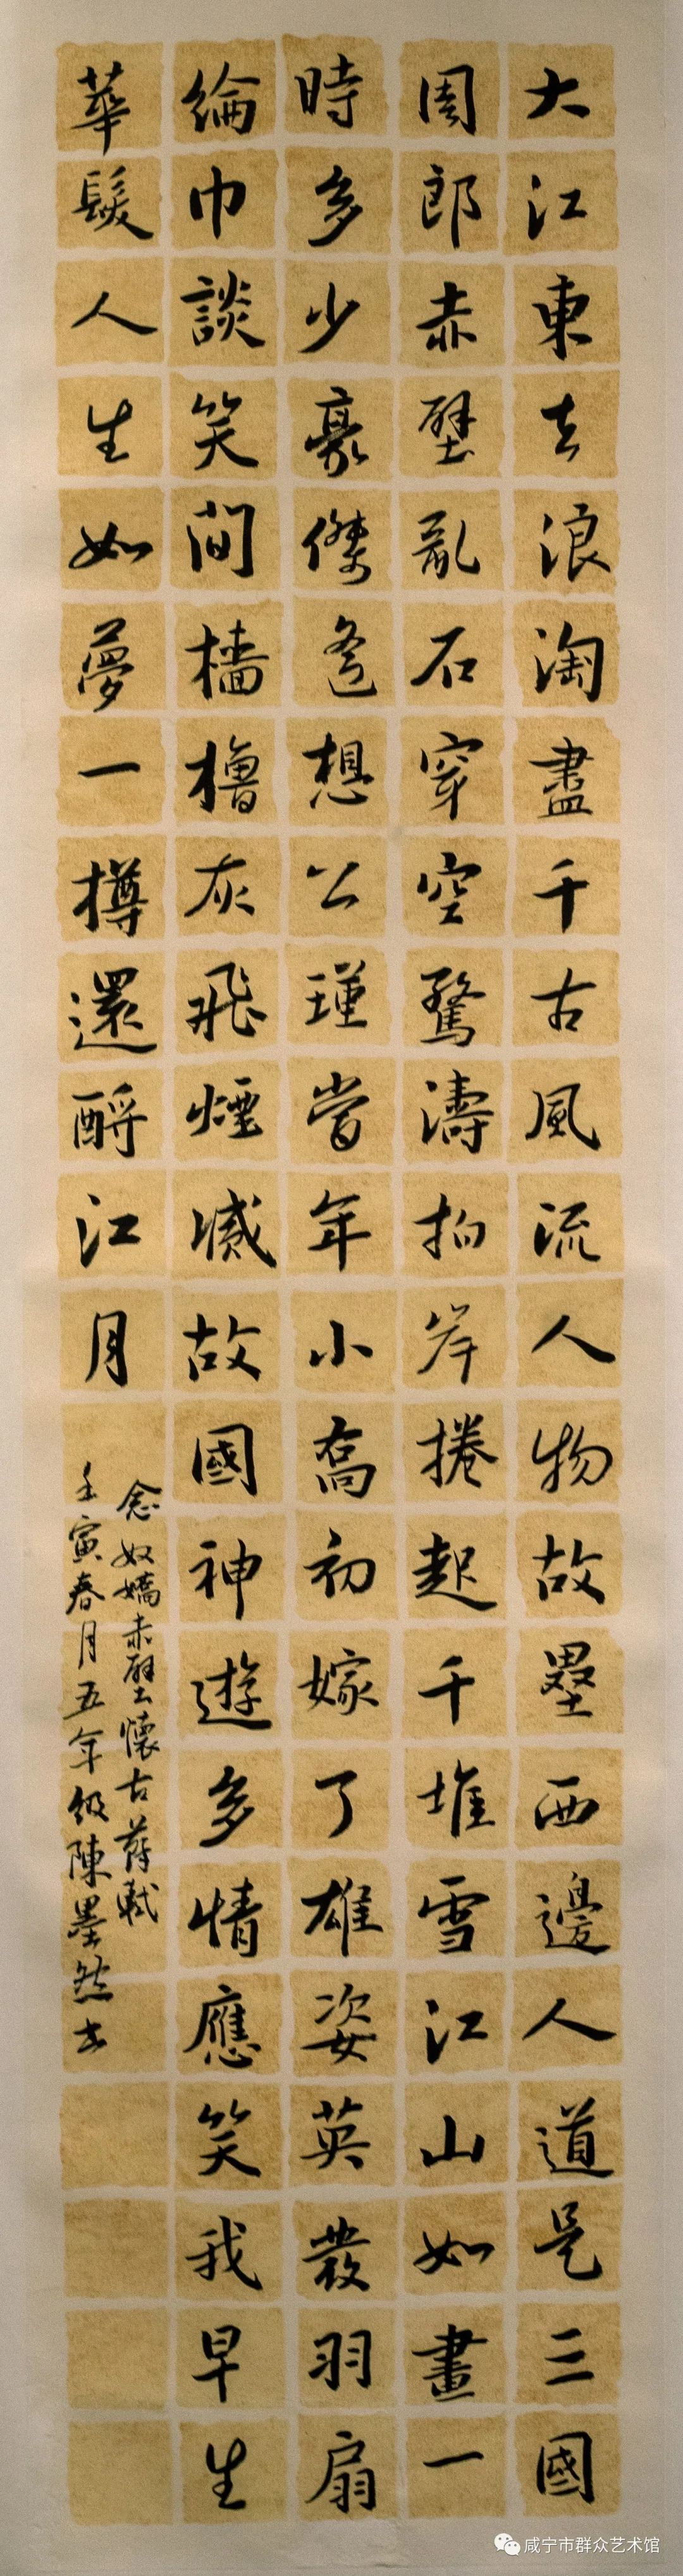 大江東去浪淘盡千古風流人物故壘西邊人道是三國
周郎赤壁亂石穿空驚濤拍岸捲起千堆雪江山如畫一
時多少豪傑遙想公瑾當年小喬初嫁了雄姿英發羽扇
綸巾談笑間檣櫓灰飛煙滅故國神遊多情應笑我早生
華髮人生如夢一樽還酹江月
念奴嬌赤壁懷古蘇軾
壬寅春月五年級陳墨然書
咸宁市群众艺术馆